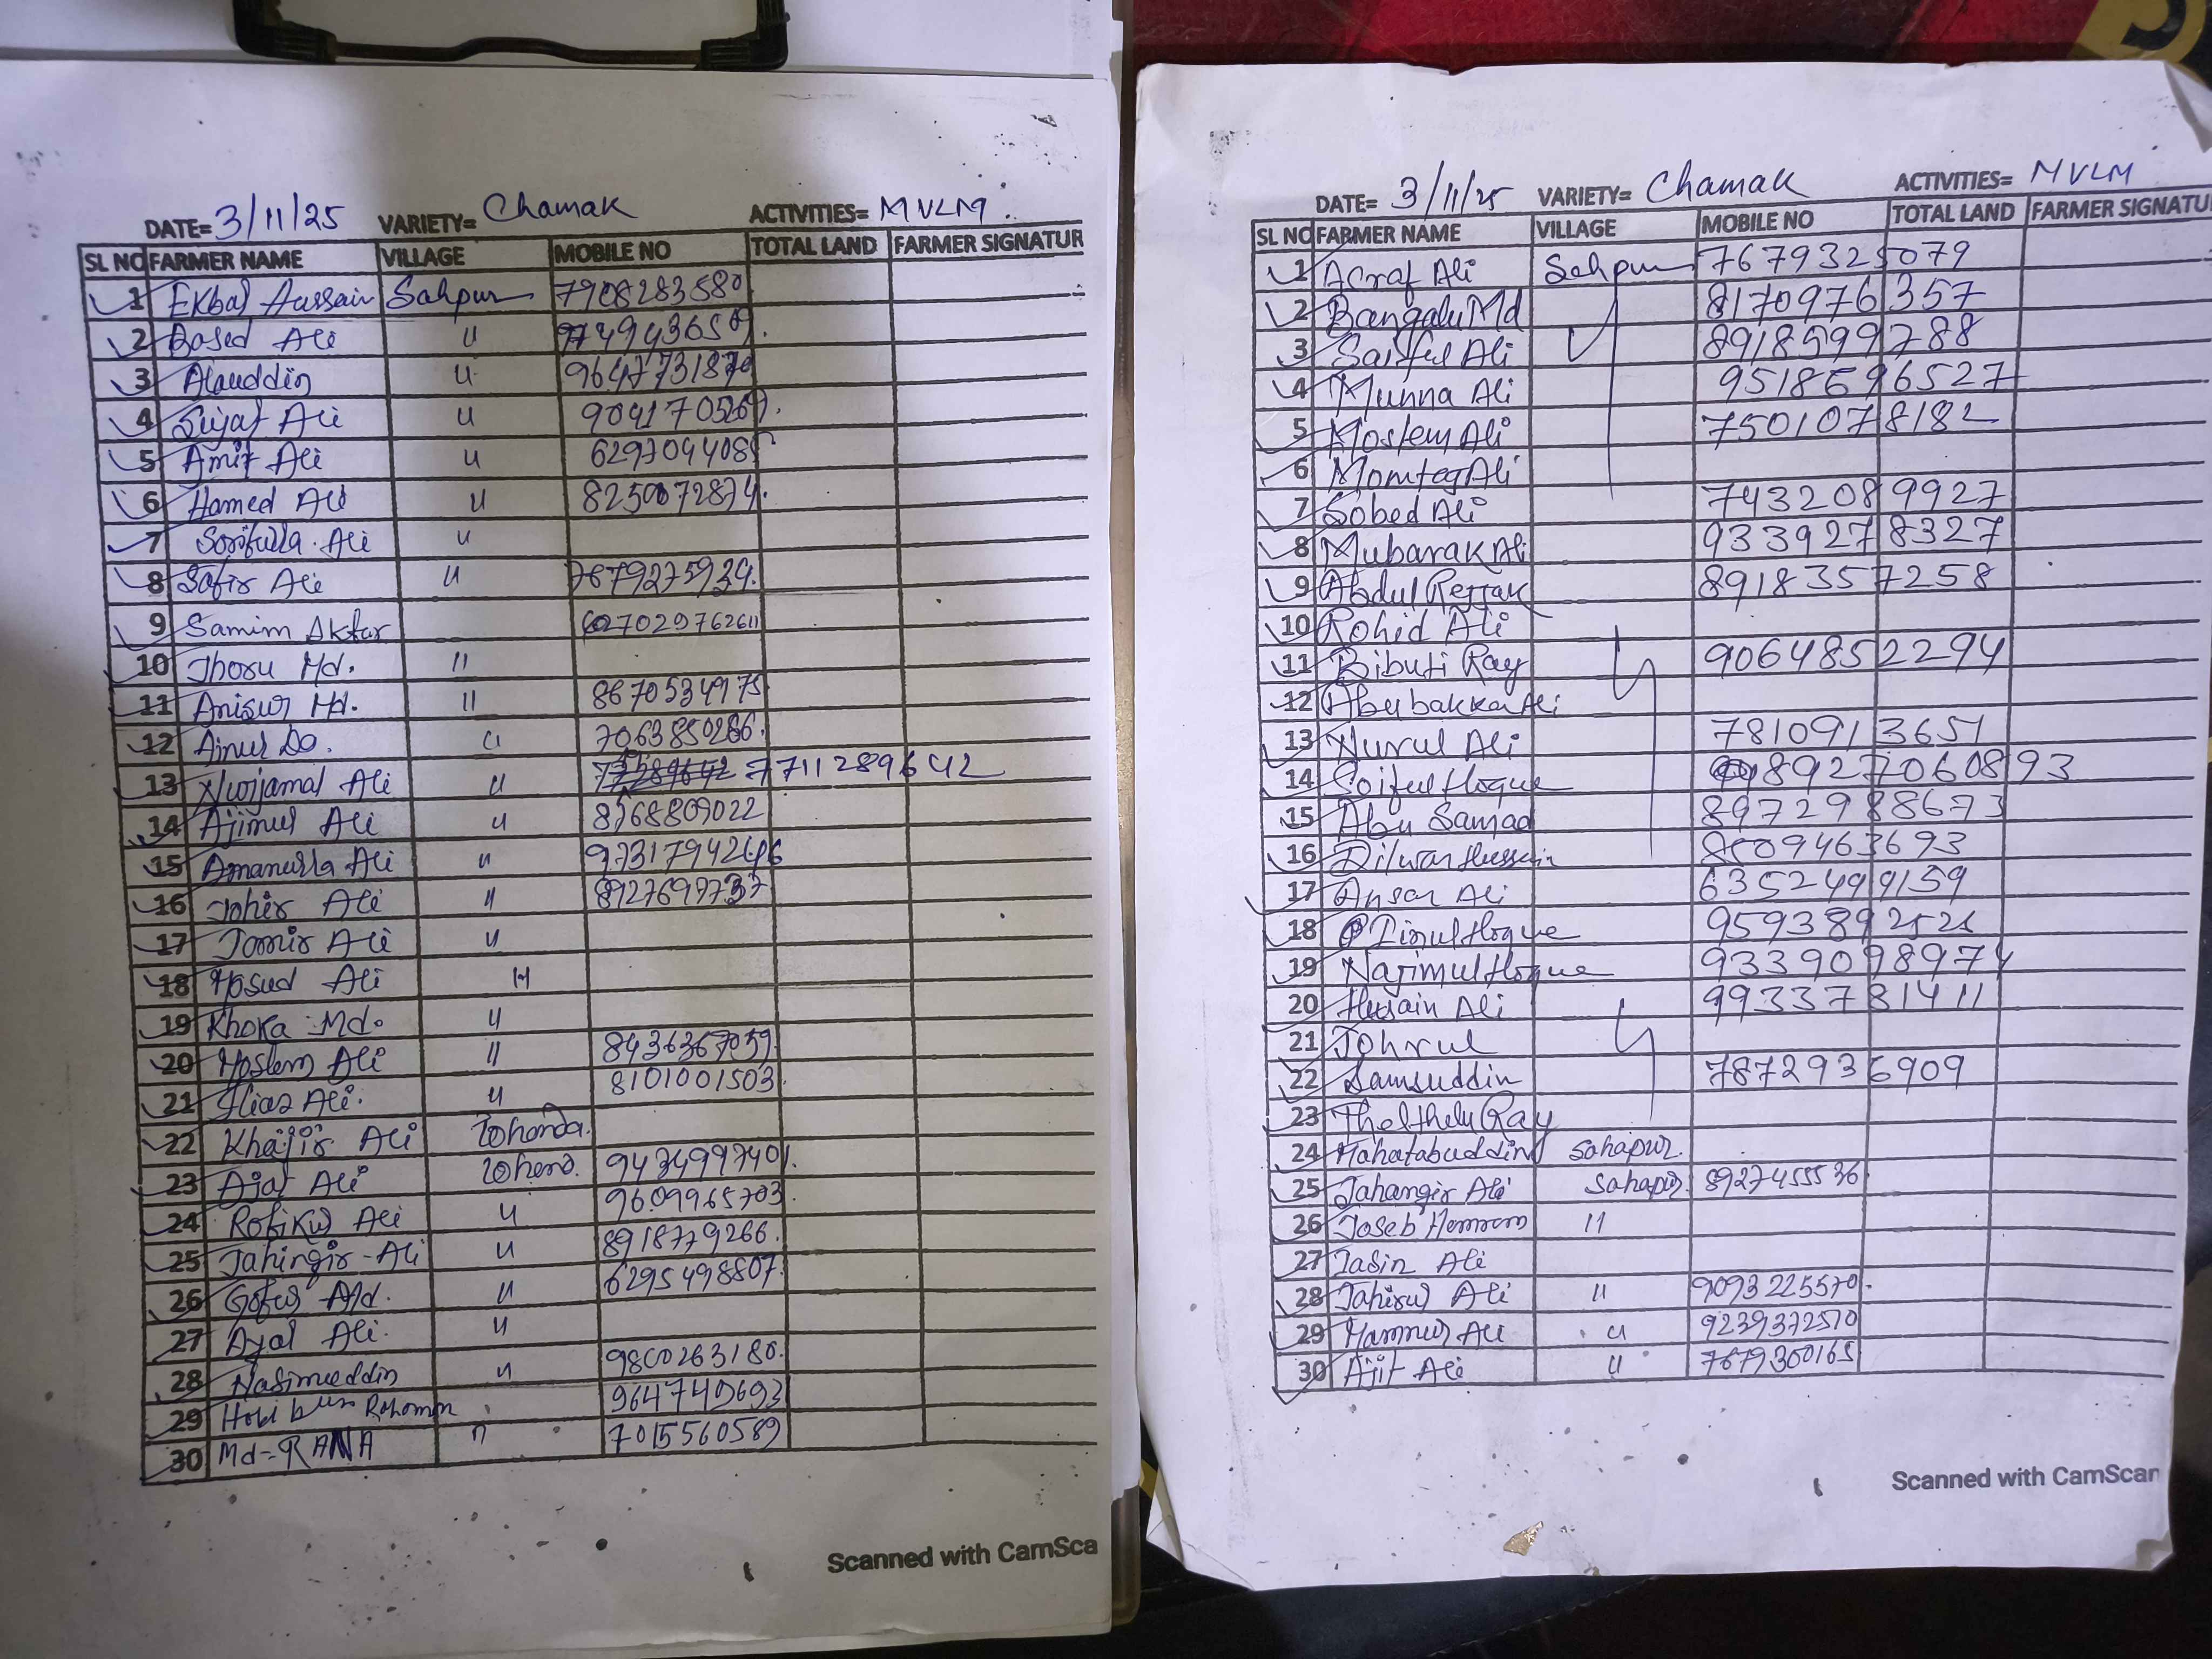 DATE= 3/11/25 VARIETY= Chamak ACTIVITIES= MVLM.
SL NO FARMER NAME VILLAGE MOBILE NO TOTAL LAND FARMER SIGNATUR
1 Ekbal Hussain Sahpur 7908283580
2 Based Ali 〃
3 Alauddin 〃
4 Sujat Ali 〃
5 Amir Ali 〃
6 Hamed Ali 〃
7 Sorifulla Ali 〃
8 Safir Ali 〃 7679275934.
9 Samim Aktar
10 Jhoru Md. 〃
11 Anisur Md. 〃 8670534975
12 Ainul Do. 〃 7063850286.
13 Nurjamal Ali 〃 7711289642
14 Ajimul Ali 〃
15 Amanulla Ali 〃 9731794246
16 Johir Ali 〃
17 Jomir Ali 〃
18 Hosud Ali 〃
19 Khoka Md. 〃
20 Hoslem Ali 〃 8436367059
21 Iliaz Ali. 〃 8101001503.
22 Khajir Ali
23 Ajaf Ali 9434997401.
24 Rofikul Ali 〃 9609965703.
25 Jahingir-Ali 〃 8918779266.
26 Gofur Md. 〃 6295498807.
27 Ayal Ali. 〃
28 Nasimuddin 〃
29 Hobibur Rohomon 9647749693
30 Md-RANA 〃 7015560589
Scanned with CamSca
DATE= 3/11/25 VARIETY= Chamak ACTIVITIES= MVLM
SL NO FARMER NAME VILLAGE MOBILE NO TOTAL LAND FARMER SIGNATU
1 Acraf Ali Sahpur 7679325079
2 Bangalu Md 8170976357
3 Saiful Ali 8918599788
4 Munna Ali 9518696527
5 Moslem Ali 7501078182
6 Momtaj Ali
7 Sobed Ali 7432089927
8 Mubarak Ali 9339278327
9 Abdul Rejjak 8918357258
10 Rohid Ali
11 Bibuti Ray 9064852294
12 Abubakkar Ali
13 Nurul Ali 7810913651
14 Soiful Hoque 892706 0893
15 Abu Samad 8972988673
16 Dilwar Hussain 8509463693
17 Ansar Ali 6352499159
18 Dinul Hoque 9593892525
19 Najimul Hoque 9339098974
20 Husain Ali 9933731411
21 Johrul
22 Samsuddin 7872936909
23 Thelthelu Ray
24 Mahatabuddin Sahapur.
25 Jahangir Ali Sahapur. 8927455536
26 Joseb Hemrom 〃
27 Jasin Ali
28 Jahirul Ali 〃 9093225570.
29 Hamnur Ali 〃 9239372570
30 Ajit Ali 〃 7679300165
Scanned with CamScan